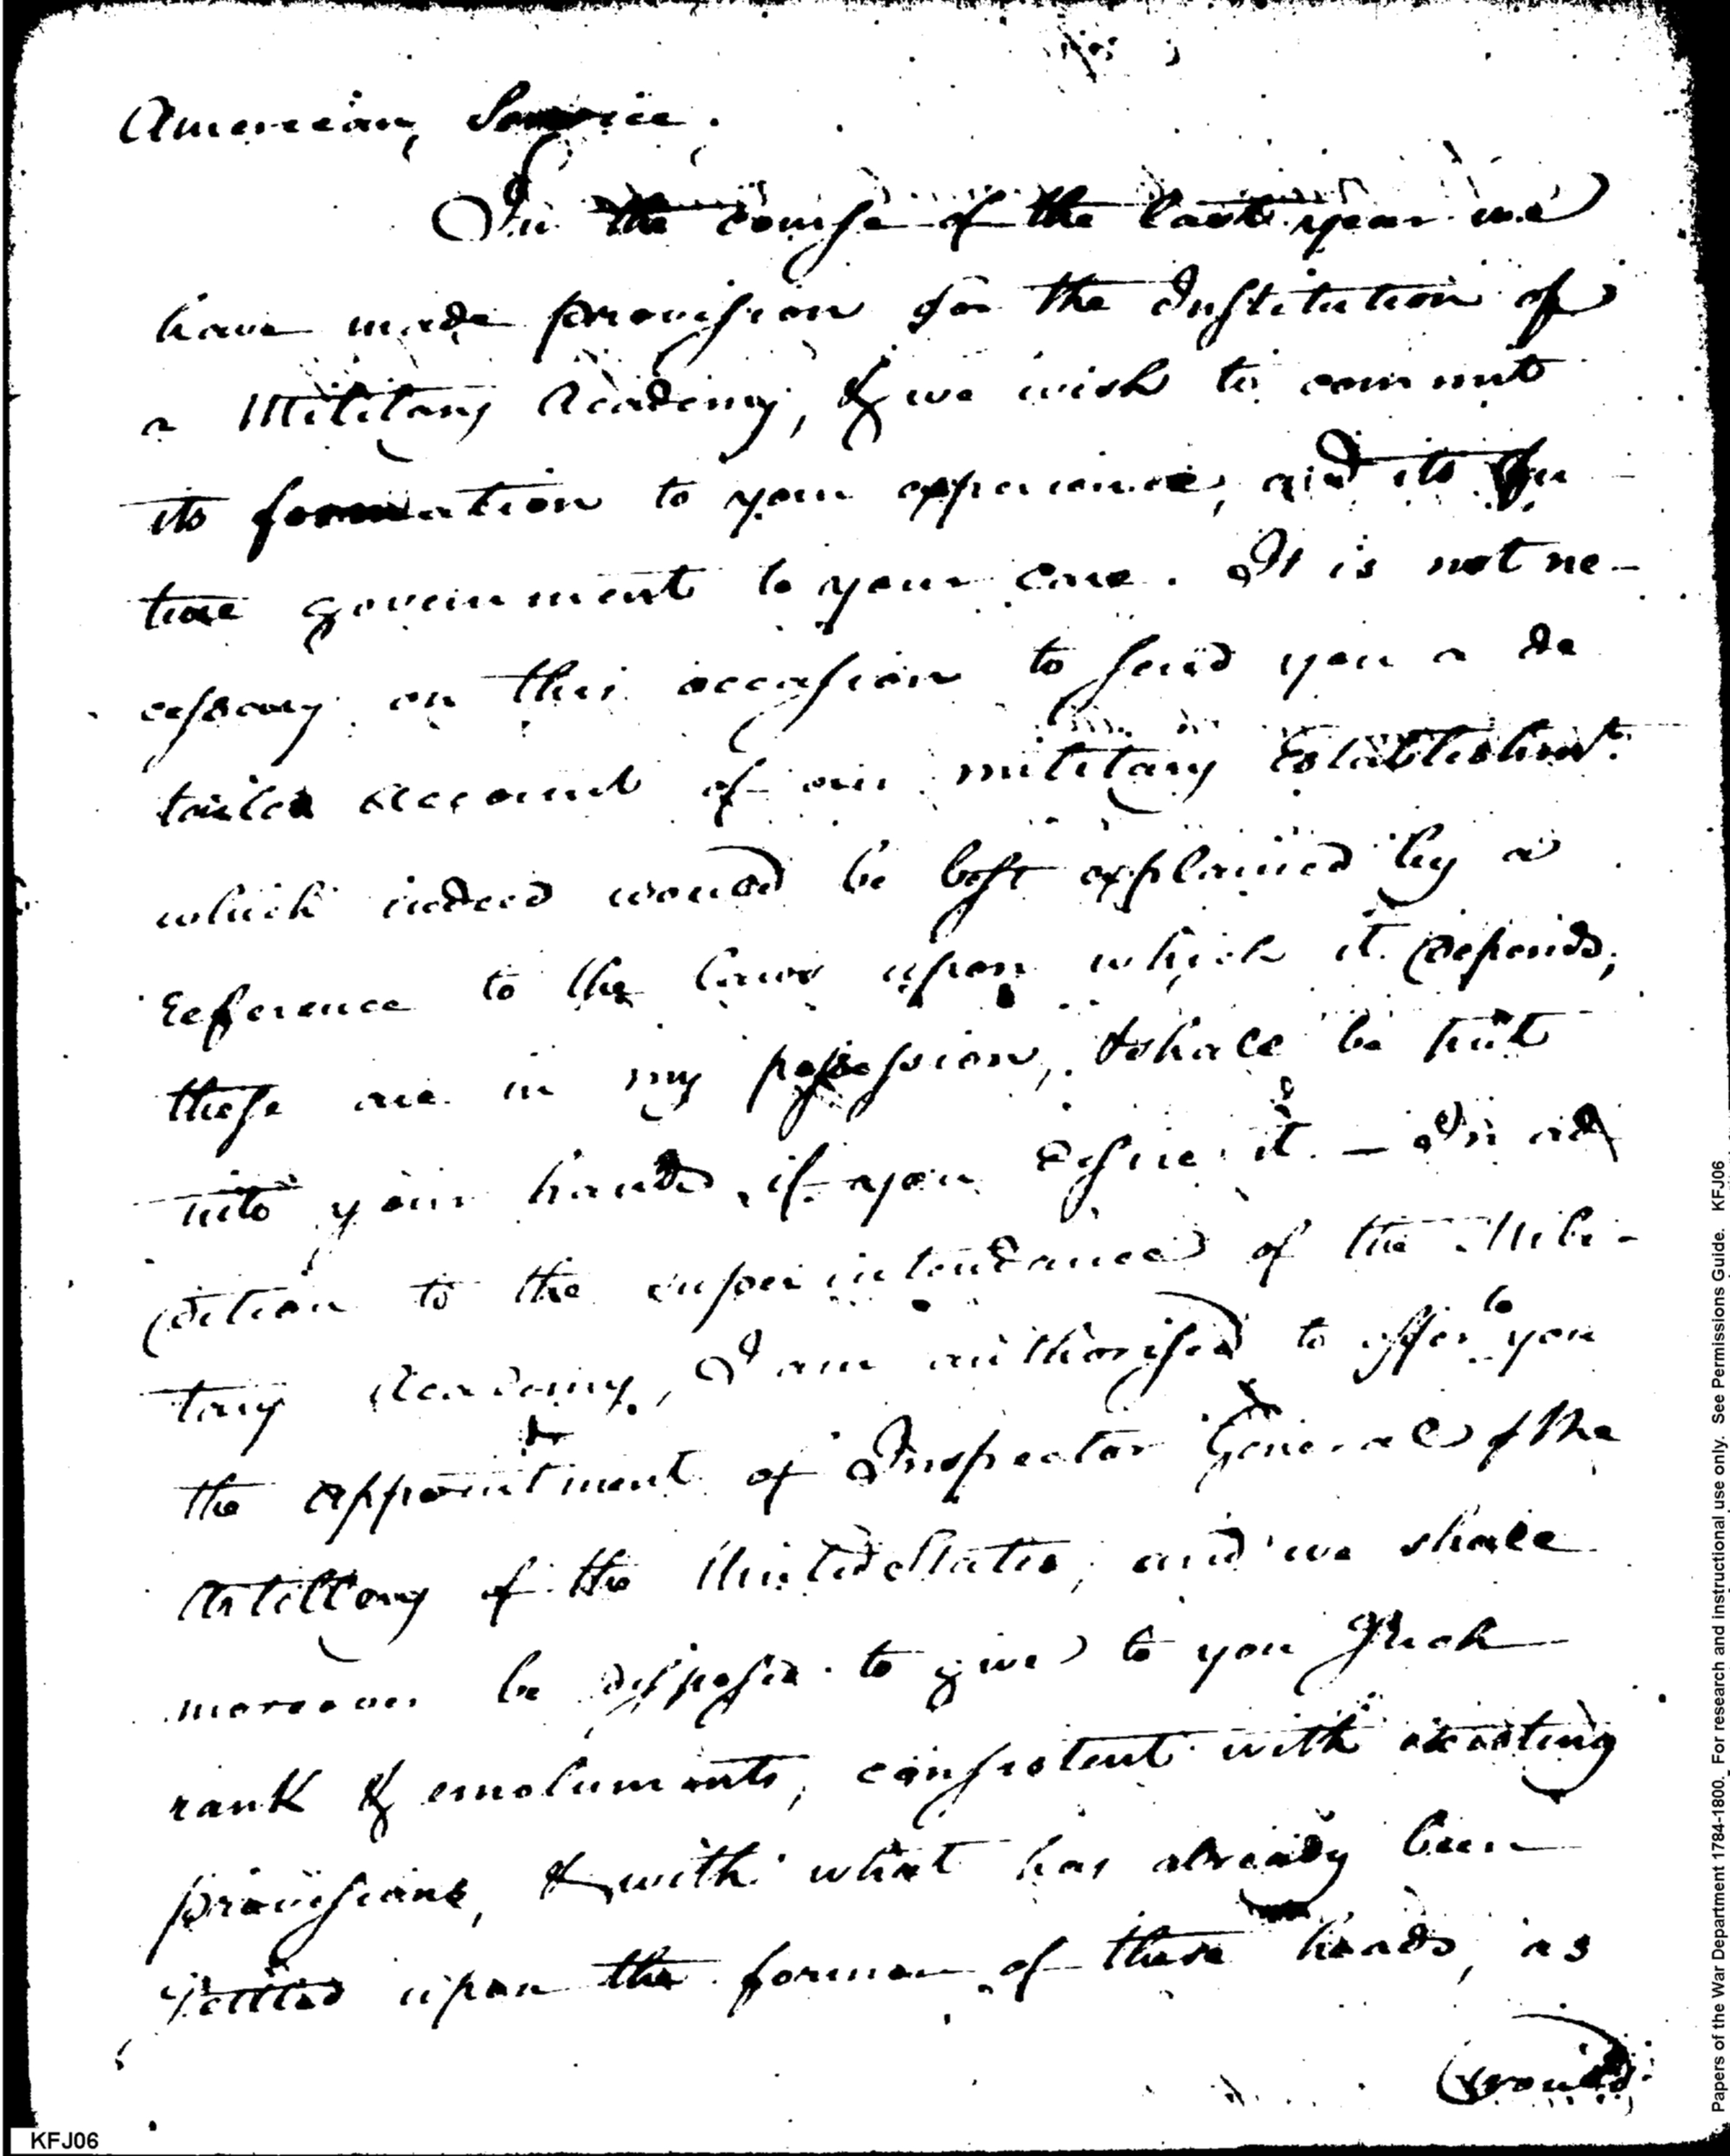 American, Service.
In the course of the last year we
have made provision for the Institution of
a Military Academy, & we wish to commit
its formation to your experience, and its fu-
ture government to your care. It is not ne-
cessary on this occasion to send you a de
tailed account of our military Establishmt.
which indeed would be best explained by a
reference to the laws upon which it depends;
these are in my possession, & shall be put
into your hands, if you desire it. — In ad
dition to the superintendance of the Mili-
tary Academy, I am authorised to offer to you
the appointment of Inspector General of the
Artillery of the United States, and we shall
moreover be disposed to give to you such
rank & emoluments, consistent with existing
provisions, & with what has already been
settled upon the former of these heads, as
would
KFJ06
Papers of the War Department 1784-1800. For research and instructional use only. See Permissions Guide. KFJ06